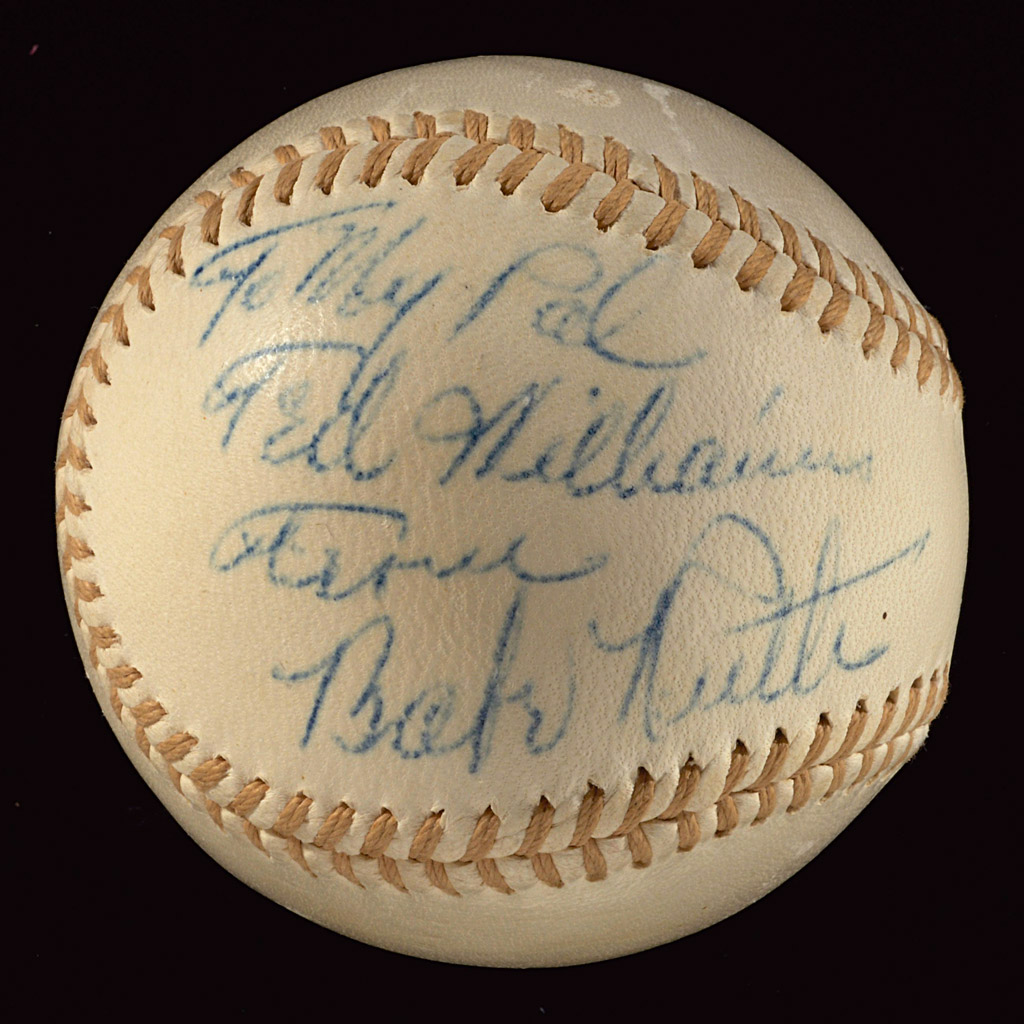 To My Pal
Ted Williams
From
Babe Ruth